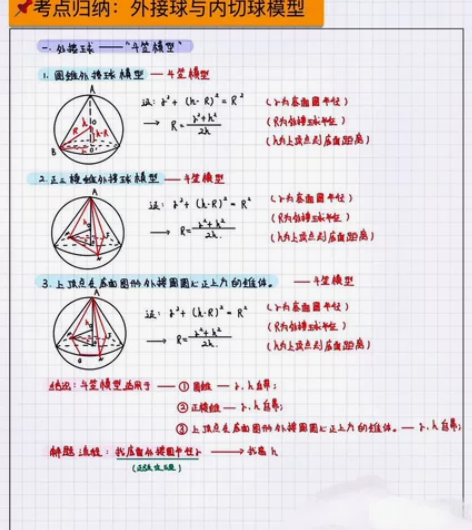 考点归纳：外接球与内切球模型
一. 外接球 ——"斗笠模型"
1. 圆锥外接球模型 — 斗笠模型
A
R
h
O
h-R
B
r
O'
证: r² + (h-R)² = R²
(r为底面圆半径)
→ R = (r²+h²)/2h
(R为外接球半径)
(h为上顶点到底面距离)
2. 正三棱锥外接球模型 — 斗笠模型
A
证: r² + (h-R)² = R²
(r为底面圆半径)
→ R = (r²+h²)/2h.
(R为外接球半径)
(h为上顶点到底面距离)
3. 上顶点在底面图形外接圆圆心正上方的锥体。 — 斗笠模型
A
证: r² + (h-R)² = R²
(r为底面圆半径)
→ R = (r²+h²)/2h.
(R为外接球半径)
(h为上顶点到底面距离)
结论: 斗笠模型适用于 — ① 圆锥 — r, h自带;
② 正棱锥 — r, h自带;
③ 上顶点在底面图形外接圆圆心正上方的锥体。— r, h自带;
解题流程: 找底面外接圆半径r → 找高h
(正弦定理)